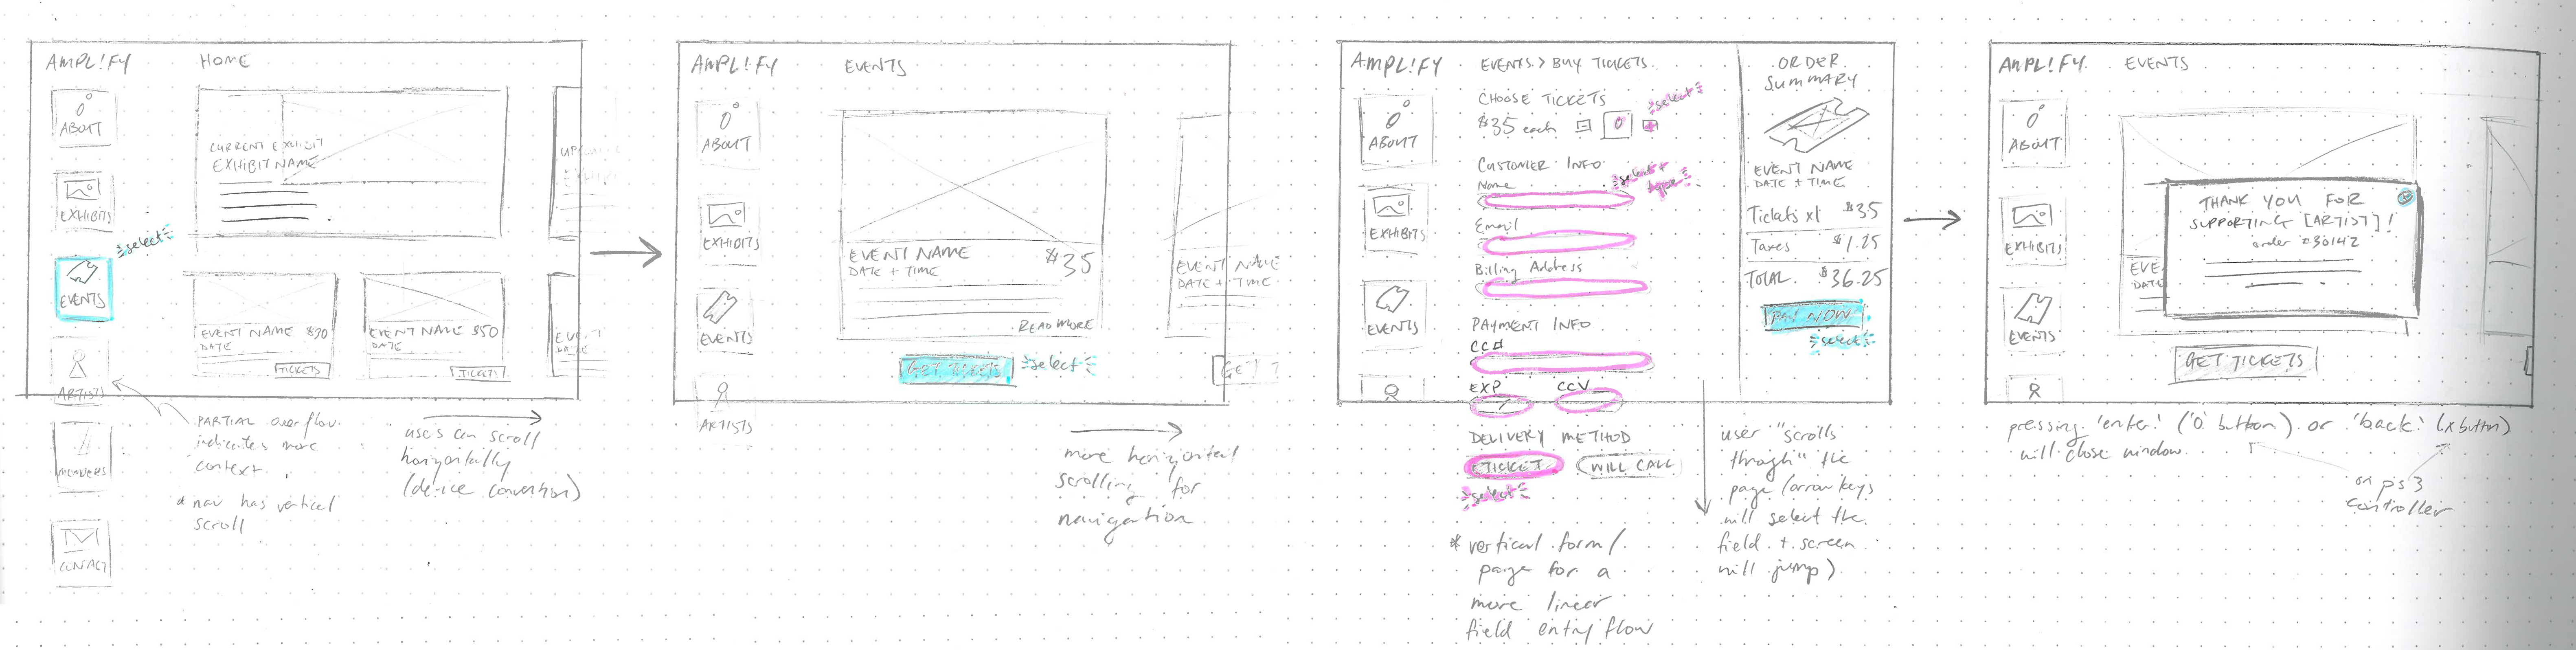 AMPL!FY
HOME
ABOUT
EXHIBITS
EVENTS
select
ARTISTS
MEMBERS
CONTACT
CURRENT EXHIBIT
EXHIBIT NAME
EVENT NAME $30
DATE
TICKETS
EVENT NAME $50
DATE
TICKETS
PARTIAL overflow
indicates more
context.
* nav has vertical
scroll
users can scroll
horizontally
(device convention)
AMPL!FY
EVENTS
ABOUT
EXHIBITS
EVENTS
ARTISTS
EVENT NAME
DATE + TIME
$35
READ MORE
GET TICKETS
select
EVENT NAME
DATE + TIME
GET T
more horizontal
scrolling for
navigation
AMPL!FY
EVENTS > BUY TICKETS
ABOUT
EXHIBITS
EVENTS
CHOOSE TICKETS
$35 each - 0 +
select
CUSTOMER INFO
Name
select +
type
Email
Billing Address
PAYMENT INFO
CC#
EXP CCV
/
DELIVERY METHOD
ETICKET WILL CALL
select
* vertical form/
page for a
more linear
field entry flow
ORDER
SUMMARY
EVENT NAME
DATE + TIME
Tickets x1 $35
Taxes $1.25
TOTAL $36.25
PAY NOW
select
user "scrolls
through" the
page (arrow keys
will select the
field + screen
will jump)
AMPL!FY
EVENTS
ABOUT
EXHIBITS
EVENTS
THANK YOU FOR
SUPPORTING [ARTIST]!
order #30142
EVE
DATE
GET TICKETS
pressing 'enter' ('O' button) or 'back' (x button)
will close window
on ps3
controller